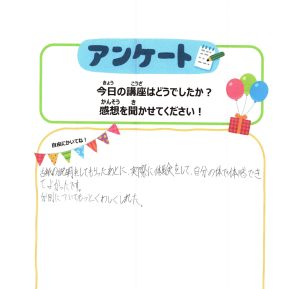 アンケート
きょう こうざ
今日の講座はどうでしたか？
かんそう き
感想を聞かせてください！
自由にかいてね！
説明をしてもらったあとに、実際に体験をして、自分の体で体感でき
てよかったです。
についてもっとくわしくしれた。